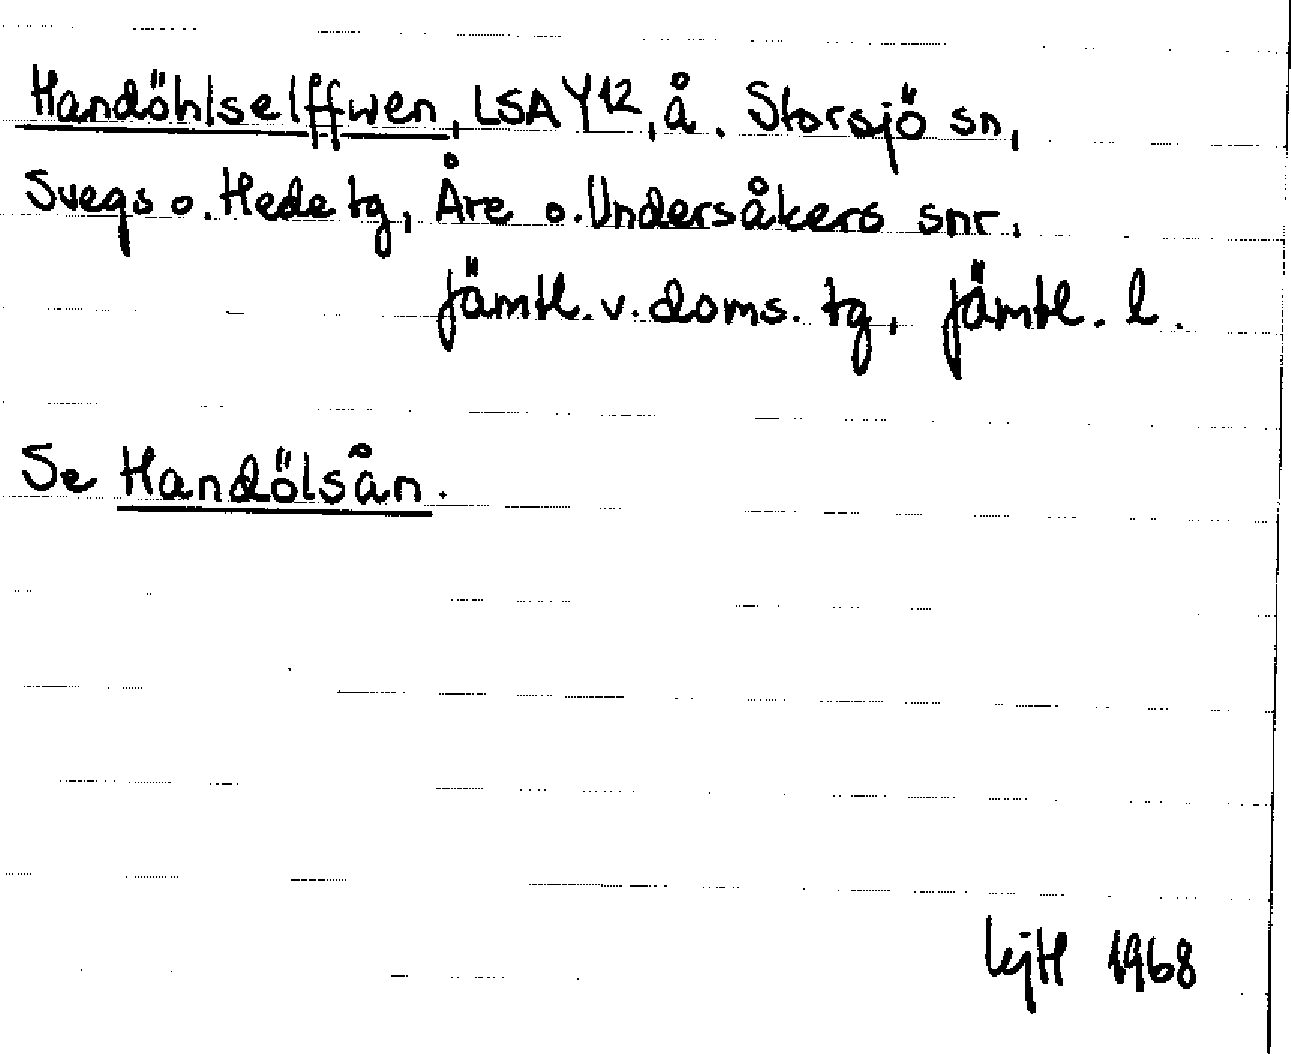 Handöhlselffwen, LSA Y12, å. Storsjö sn,
Svegs o. Hede tg, Åre o. Undersåkers snr.
Jämtl. v. doms. tg, Jämtl. l.
Se Handölsån.
1968